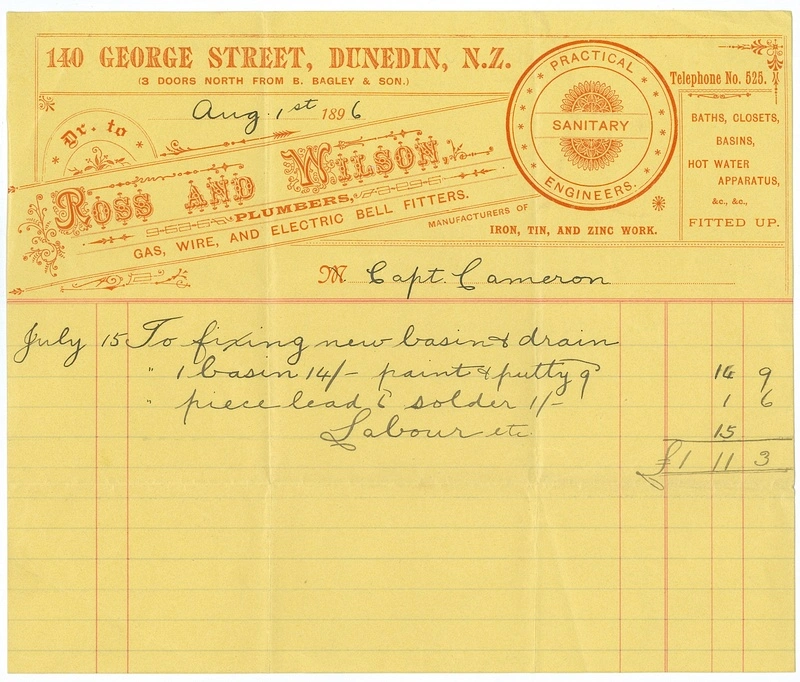 140 GEORGE STREET, DUNEDIN, N.Z.
(3 DOORS NORTH FROM B. BAGLEY & SON.)
Aug. 1st 1896
Dr. to
ROSS AND WILSON,
PLUMBERS,
GAS, WIRE, AND ELECTRIC BELL FITTERS.
MANUFACTURERS OF
IRON, TIN, AND ZINC WORK.
PRACTICAL
SANITARY
ENGINEERS.
Telephone No. 525.
BATHS, CLOSETS,
BASINS,
HOT WATER
APPARATUS,
&c., &c.,
FITTED UP.
M Capt. Cameron
July 15 To fixing new basin & drain
" 1 basin 14/- paint & putty 9 14 9
" piece lead 6 solder 1/- 1 6
Labour etc. 15
£1 11 3